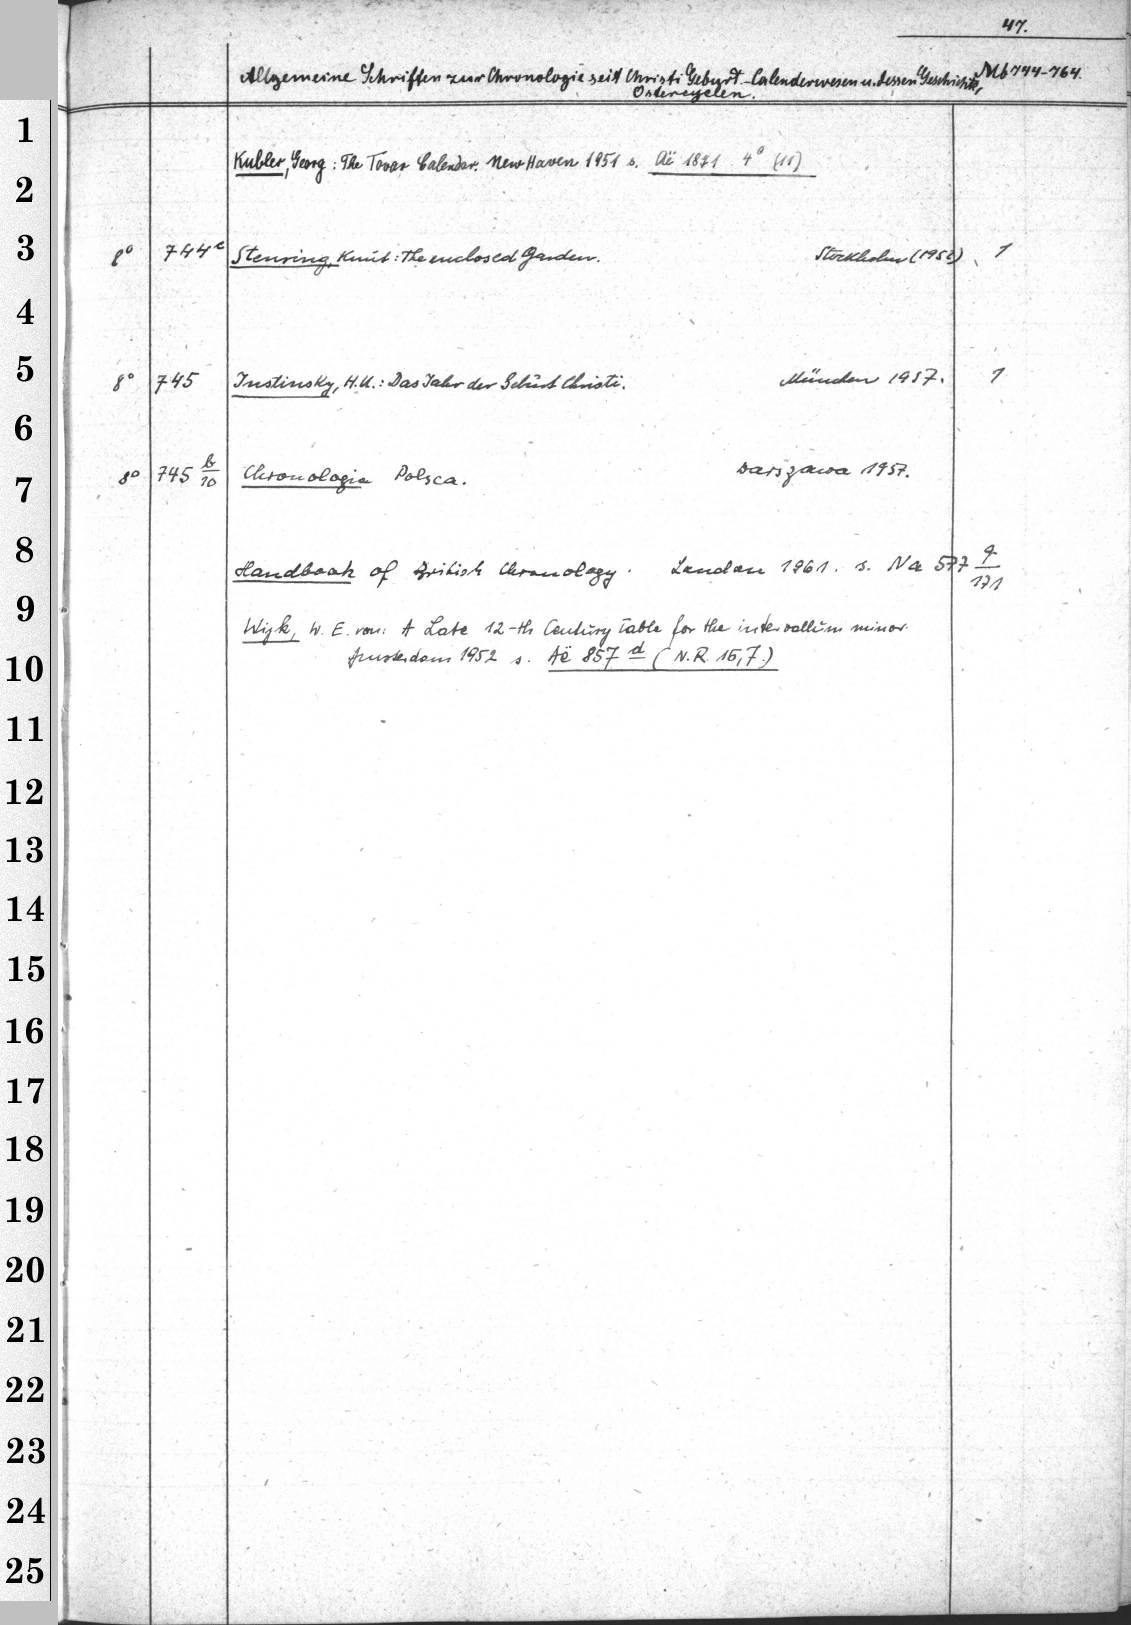 47.
Allgemeine Schriften zur Chronologie seit Christi Geburt. Calenderwesen u. dessen Geschichte, Mb 744-764.
Ostercyclen.
1
Kubler, Georg: The Tovar Calendar. New Haven 1951 s. Aë 1871 4° (11)
2
3 8° 744c Stenring, Knut: The enclosed Garden. Stockholm (1952) 1
4
5 8° 745 Instinsky, H.U.: Das Jahr der Geburt Christi. München 1957. 1
6
7 8° 745 b/10 Chronologia Polsca. Warszawa 1957.
8 Handbook of British Chronology. London 1961. s. Na 577 q/171
9 Wijk, W. E. van: A Late 12-th Century Table for the intervallum minor.
10 Amsterdam 1952 s. Aë 857 d (N.R. 15,7.)
11
12
13
14
15
16
17
18
19
20
21
22
23
24
25